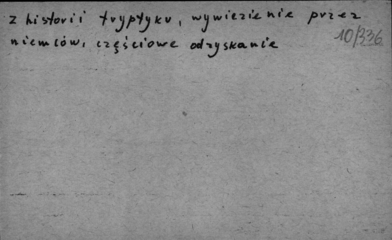 z historii tryptyku, wywiezienie przez
niemców, częściowe odzyskanie
10/336